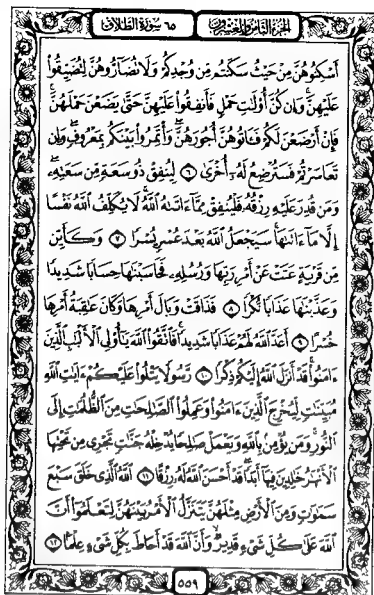 الجزء الثامن والعشرون ٦٥ سورة الطلاق
أَسْكِنُوهُنَّ مِنْ حَيْثُ سَكَنتُم مِّن وُجْدِكُمْ وَلَا تُضَآرُّوهُنَّ لِتُضَيِّقُوا۟
عَلَيْهِنَّ ۚ وَإِن كُنَّ أُو۟لَٰتِ حَمْلٍ فَأَنفِقُوا۟ عَلَيْهِنَّ حَتَّىٰ يَضَعْنَ حَمْلَهُنَّ ۚ
فَإِنْ أَرْضَعْنَ لَكُمْ فَـَٔاتُوهُنَّ أُجُورَهُنَّ ۖ وَأْتَمِرُوا۟ بَيْنَكُم بِمَعْرُوفٍ ۖ وَإِن
تَعَاسَرْتُمْ فَسَتُرْضِعُ لَهُۥٓ أُخْرَىٰ ٦ لِيُنفِقْ ذُو سَعَةٍ مِّن سَعَتِهِۦ ۖ
وَمَن قُدِرَ عَلَيْهِ رِزْقُهُۥ فَلْيُنفِقْ مِمَّآ ءَاتَىٰهُ ٱللَّهُ ۚ لَا يُكَلِّفُ ٱللَّهُ نَفْسًا
إِلَّا مَآ ءَاتَىٰهَا ۚ سَيَجْعَلُ ٱللَّهُ بَعْدَ عُسْرٍ يُسْرًا ٧ وَكَأَيِّن
مِّن قَرْيَةٍ عَتَتْ عَنْ أَمْرِ رَبِّهَا وَرُسُلِهِۦ فَحَاسَبْنَٰهَا حِسَابًا شَدِيدًا
وَعَذَّبْنَٰهَا عَذَابًا نُّكْرًا ٨ فَذَاقَتْ وَبَالَ أَمْرِهَا وَكَانَ عَٰقِبَةُ أَمْرِهَا
خُسْرًا ٩ أَعَدَّ ٱللَّهُ لَهُمْ عَذَابًا شَدِيدًا ۖ فَٱتَّقُوا۟ ٱللَّهَ يَٰٓأُو۟لِى ٱلْأَلْبَٰبِ ٱلَّذِينَ
ءَامَنُوا۟ ۚ قَدْ أَنزَلَ ٱللَّهُ إِلَيْكُمْ ذِكْرًا ١٠ رَّسُولًا يَتْلُوا۟ عَلَيْكُمْ ءَايَٰتِ ٱللَّهِ
مُبَيِّنَٰتٍ لِّيُخْرِجَ ٱلَّذِينَ ءَامَنُوا۟ وَعَمِلُوا۟ ٱلصَّٰلِحَٰتِ مِنَ ٱلظُّلُمَٰتِ إِلَى
ٱلنُّورِ ۚ وَمَن يُؤْمِنۢ بِٱللَّهِ وَيَعْمَلْ صَٰلِحًا يُدْخِلْهُ جَنَّٰتٍ تَجْرِى مِن تَحْتِهَا
ٱلْأَنْهَٰرُ خَٰلِدِينَ فِيهَآ أَبَدًا ۖ قَدْ أَحْسَنَ ٱللَّهُ لَهُۥ رِزْقًا ١١ ٱللَّهُ ٱلَّذِى خَلَقَ سَبْعَ
سَمَٰوَٰتٍ وَمِنَ ٱلْأَرْضِ مِثْلَهُنَّ يَتَنَزَّلُ ٱلْأَمْرُ بَيْنَهُنَّ لِتَعْلَمُوٓا۟ أَنَّ
ٱللَّهَ عَلَىٰ كُلِّ شَىْءٍ قَدِيرٌ وَأَنَّ ٱللَّهَ قَدْ أَحَاطَ بِكُلِّ شَىْءٍ عِلْمًۢا ١٢
٥٥٩